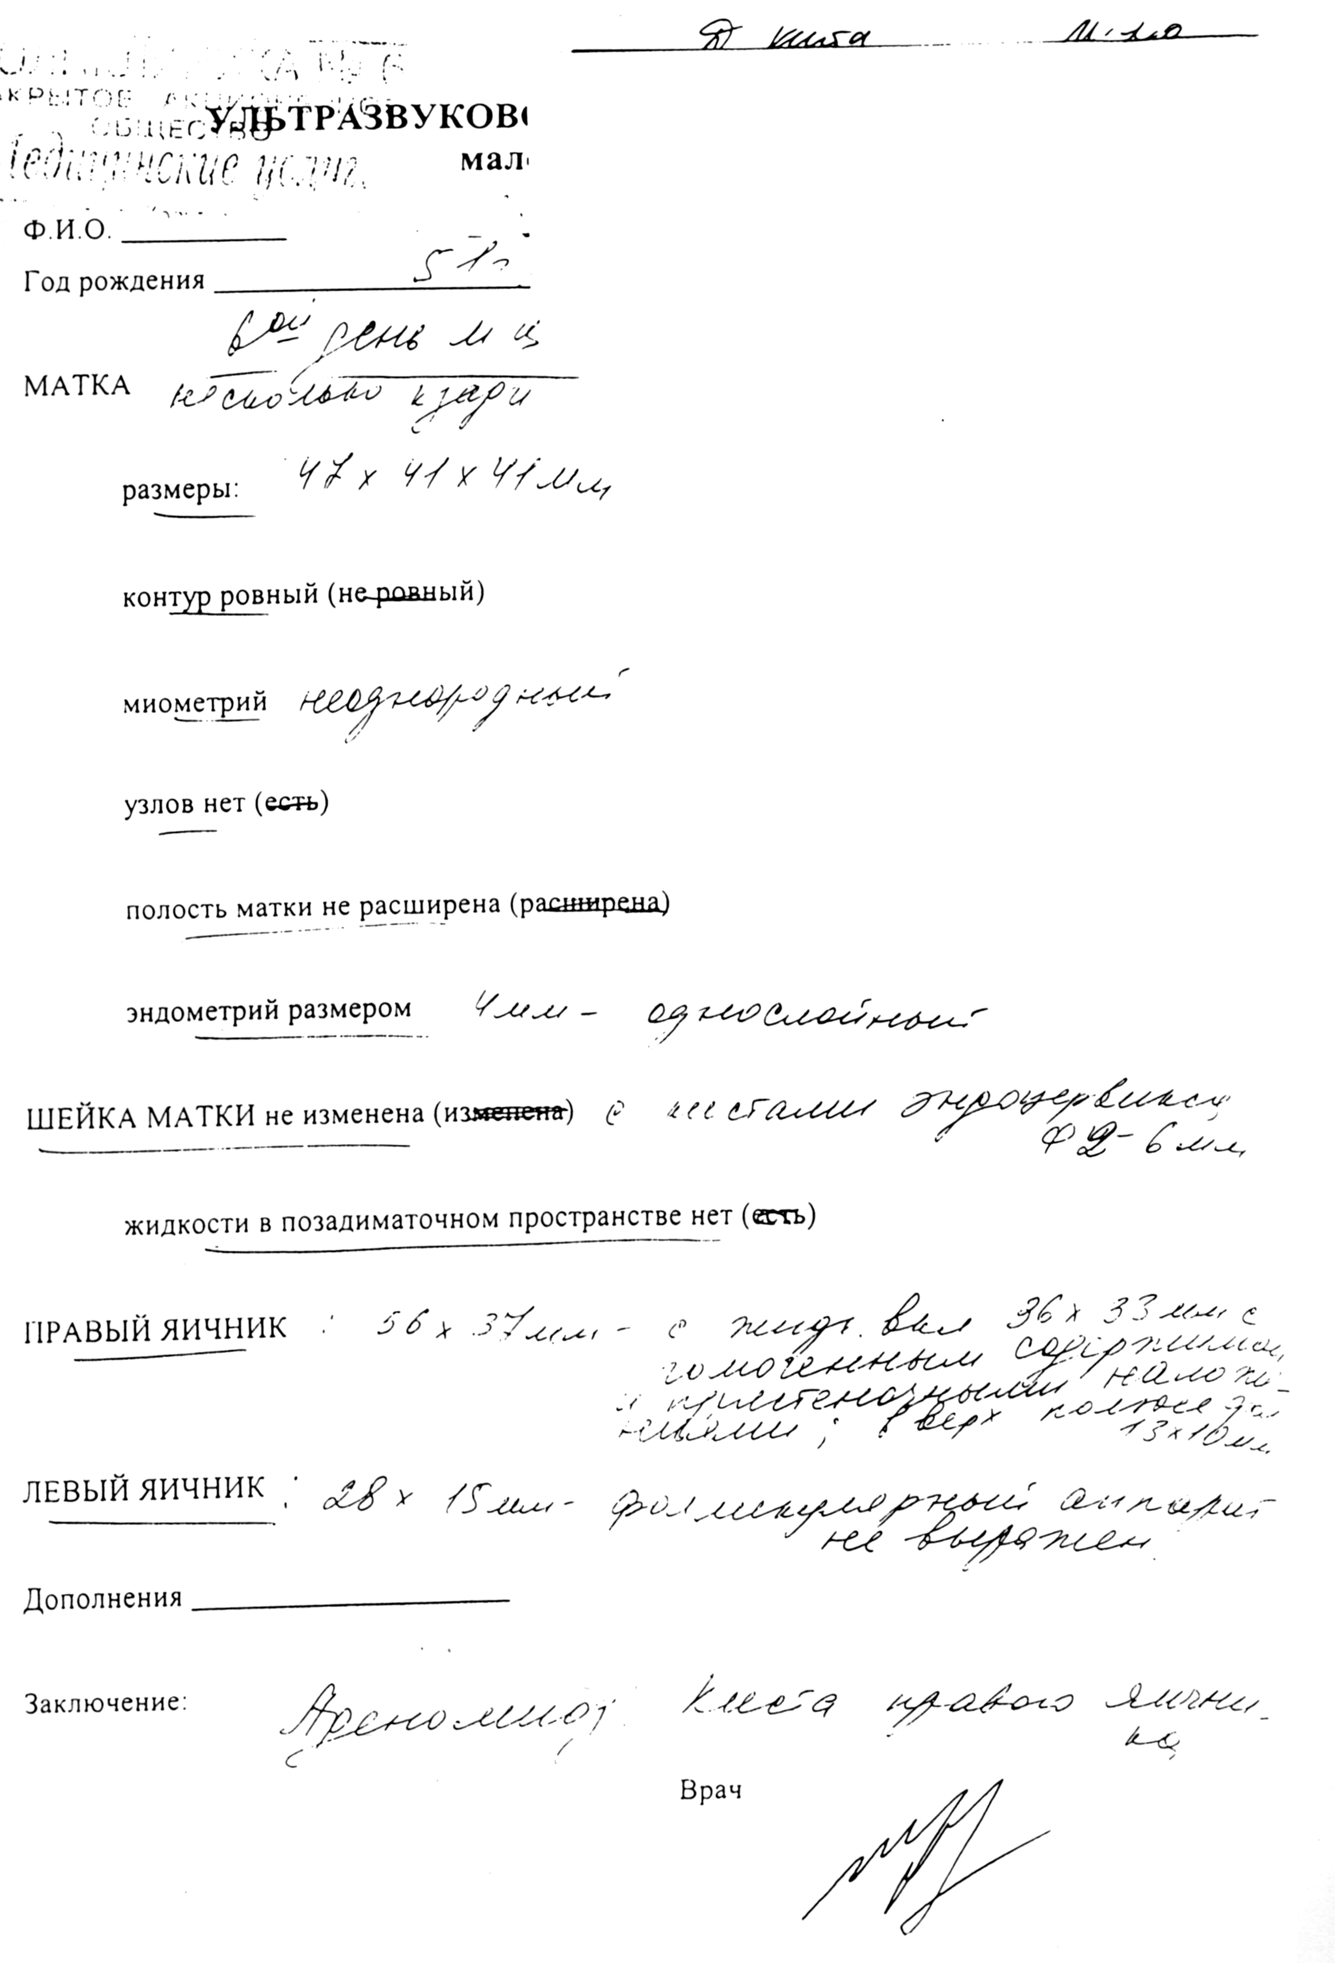 киста
АКРЫТОЕ АКЦИОНЕРНОЕ
ОБЩЕСТВО
УЛЬТРАЗВУКОВО
Медицинские услуг
мал
Ф.И.О.
Год рождения 51г
6ой день м ц
МАТКА несколько кзади
размеры: 47 х 41 х 41 мм
контур ровный (не ровный)
миометрий неоднородный
узлов нет (есть)
полость матки не расширена (расширена)
эндометрий размером 4 мм - однослойный
ШЕЙКА МАТКИ не изменена (изменена) с кистами эндоцервикса
Ф 2-6 мм
жидкости в позадиматочном пространстве нет (есть)
ПРАВЫЙ ЯИЧНИК : 56 х 37 мм - с жидк. вкл 36 х 33 мм с
гомогенным содержимым
и пристеночными наложе-
ниями; вверх полюсе
13х10 мм
ЛЕВЫЙ ЯИЧНИК : 28 х 15 мм - фолликулярный аппарат
не выражен
Дополнения
Заключение: Аденомиоз Киста правого яични-
ка
Врач